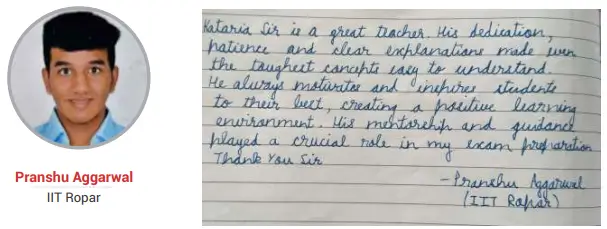 Pranshu Aggarwal
IIT Ropar
Kataria Sir is a great teacher. His dedication,
patience and clear explanations made even
the toughest concepts easy to understand.
He always motivates and inspires students
to their best, creating a positive learning
environment. His mentorship and guidance
played a crucial role in my exam preparation
Thank You Sir
- Pranshu Aggarwal
(IIT Ropar)